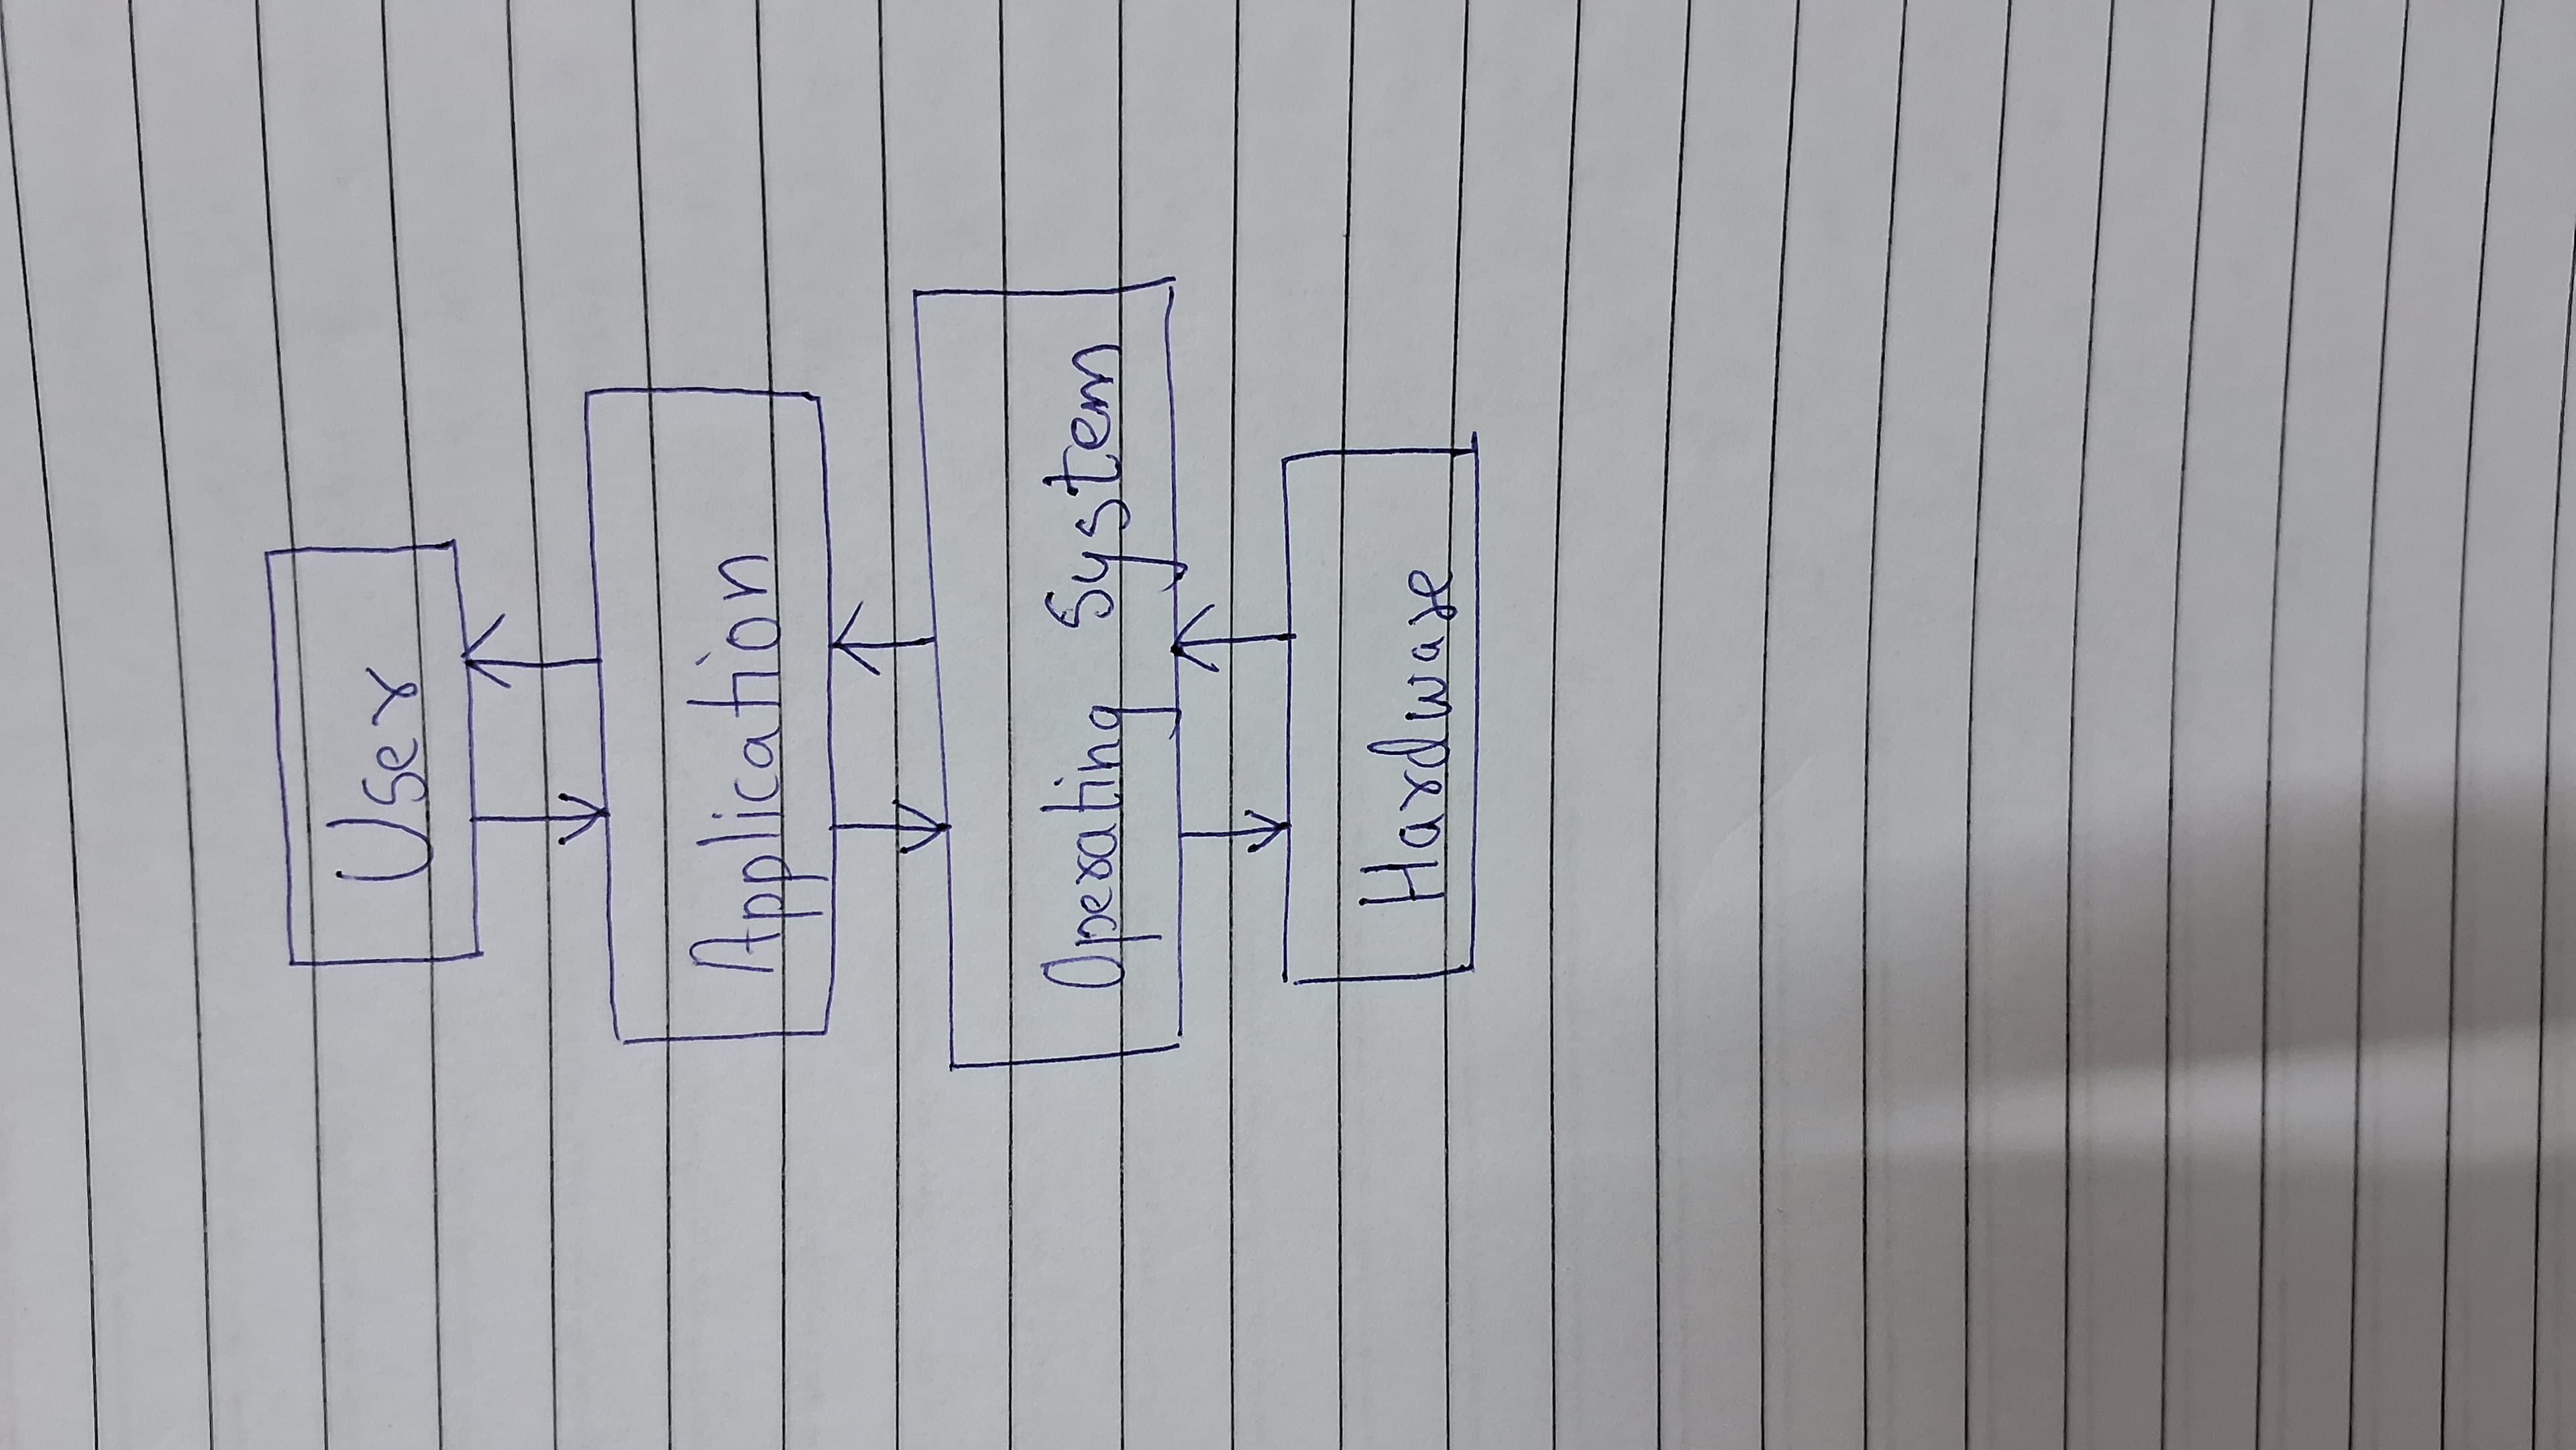 User
Application
Operating System
Hardware